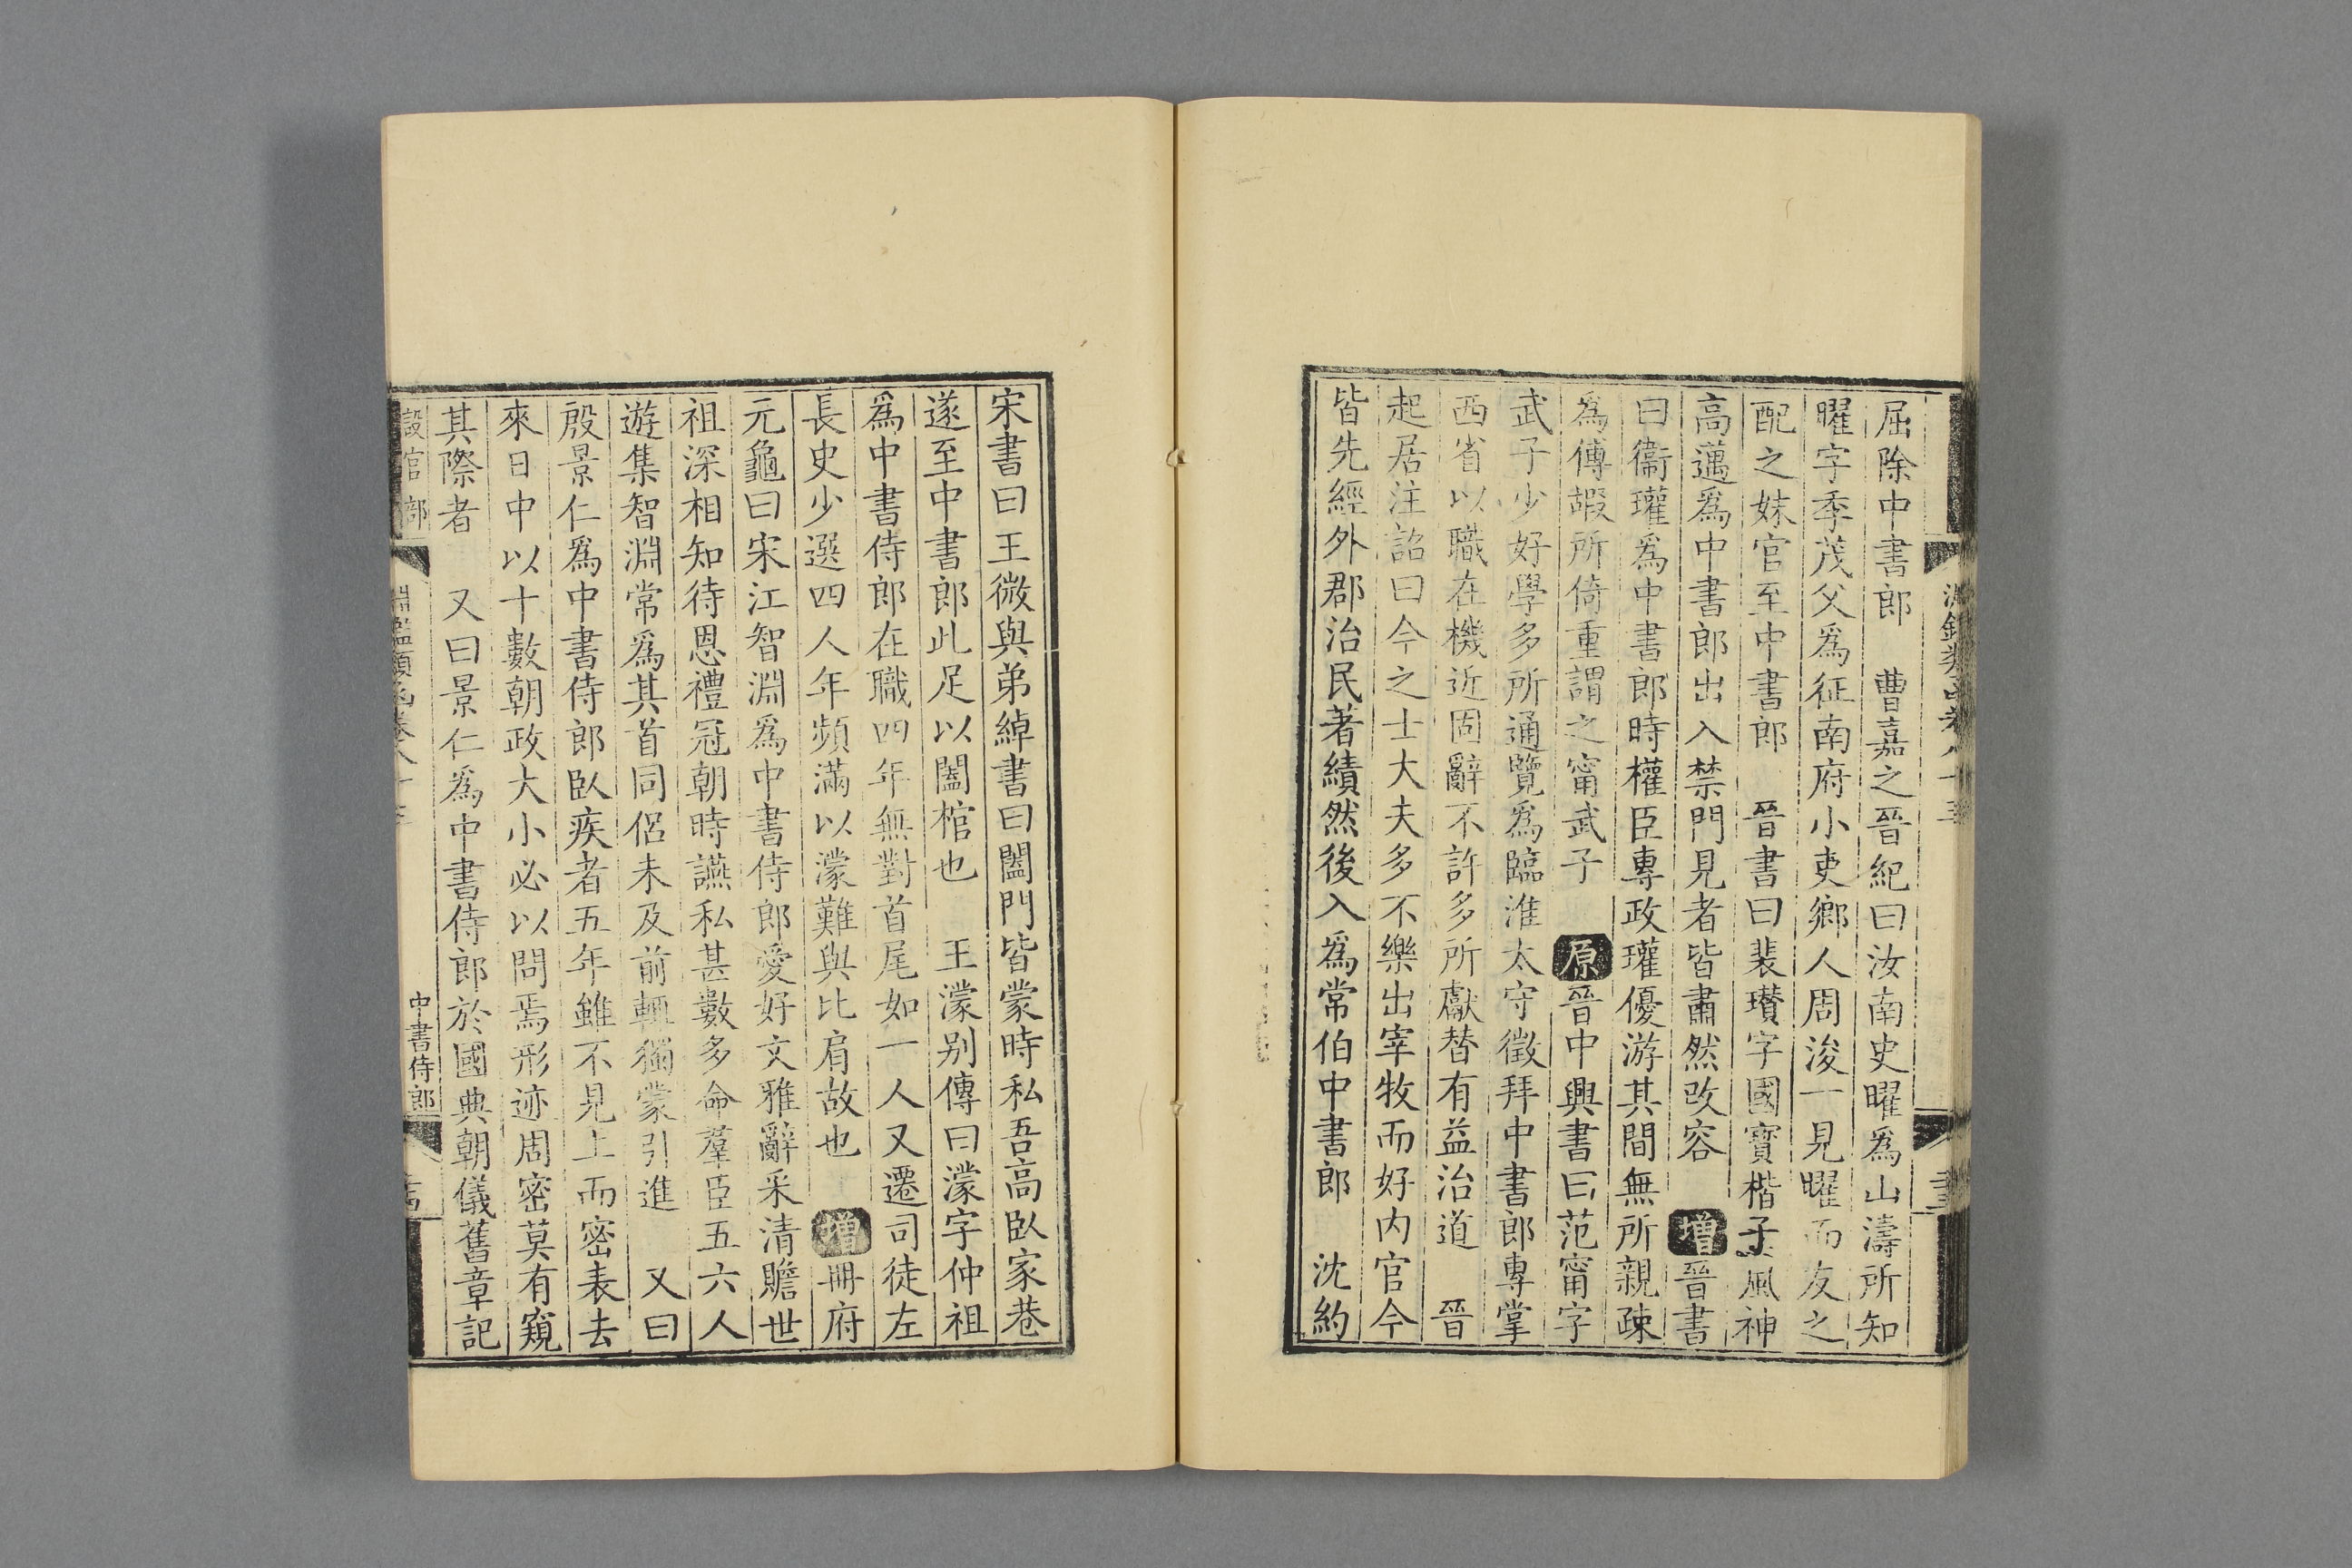 屈除中書郎　曹嘉之晉紀曰汝南史曜爲山濤所知
曜字季茂父爲征南府小吏鄉人周浚一見曜而友之
配之妹官至中書郎　晉書曰裴瓚字國寶楷子風神
高邁爲中書郎出入禁門見者皆肅然改容　增晉書
曰衞瓘爲中書郎時權臣專政瓘優游其間無所親疎
爲傅嘏所倚重謂之甯武子　原晉中興書曰范甯字
武子少好學多所通覽爲臨淮太守徵拜中書郎專掌
西省以職在機近固辭不許多所獻替有益治道　晉
起居注詔曰今之士大夫多不樂出宰牧而好内官今
皆先經外郡治民著績然後入爲常伯中書郎　沈約
宋書曰王微與弟綽書曰闔門皆蒙時私吾高臥家巷
遂至中書郎此足以闔棺也　王濛别傳曰濛字仲祖
爲中書侍郎在職四年無對首尾如一人又遷司徒左
長史少選四人年頻滿以濛難與比肩故也　增冊府
元龜曰宋江智淵爲中書侍郎愛好文雅辭采清贍世
祖深相知待恩禮冠朝時讌私甚數多命羣臣五六人
遊集智淵常爲其首同侣未及前輒獨蒙引進　又曰
殷景仁爲中書侍郎臥疾者五年雖不見上而密表去
來日中以十數朝政大小必以問焉形迹周密莫有窺
其際者　又曰景仁爲中書侍郎於國典朝儀舊章記
設官部　淵鑑類函卷八十　中書侍郎